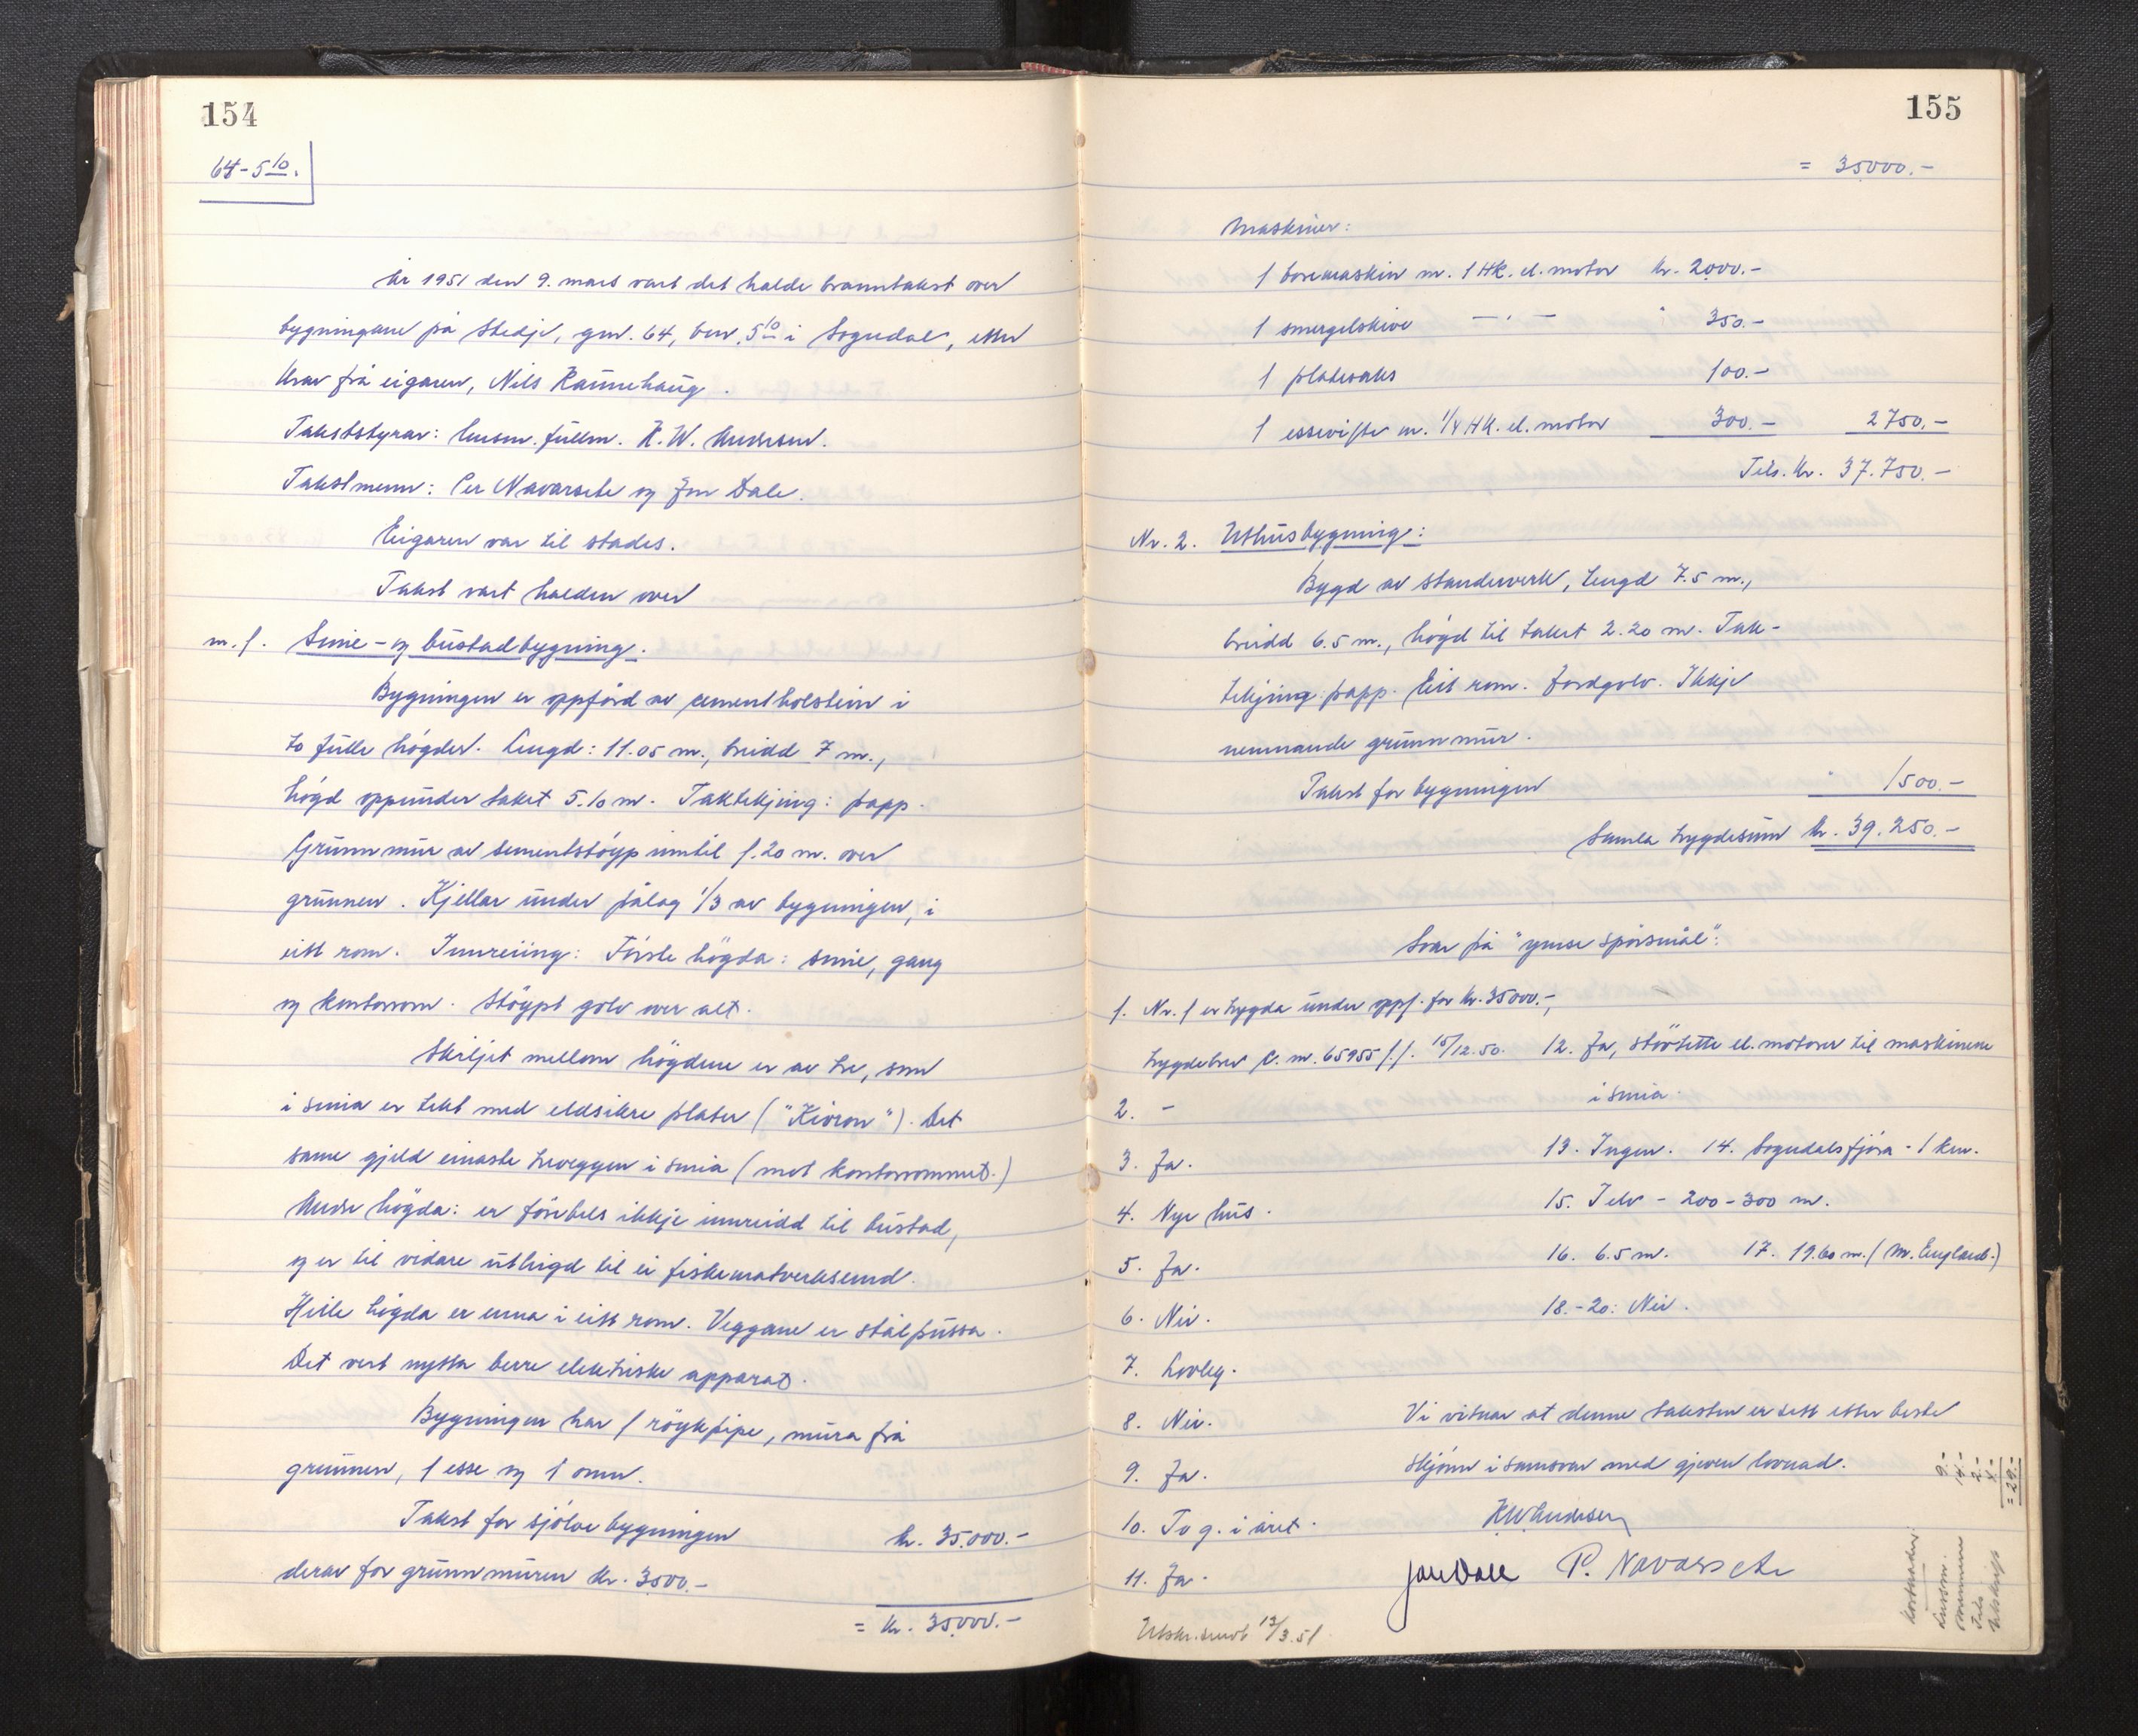 154
64 - 5 10.
År 1951 den 9. mars vart det halde branntakst over
bygningane på Stedje, gnr. 64, bnr. 5 10 i Sogndal, etter
krav frå eigaren, Nils Rannehaug.
Takststyrar: lensm. fullm. K. W. Andersen.
Takstmenn: Per Navarsete og Jon Dale.
Eigaren var til stades.
Takst vart halden over
nr. 1. Smie- og bustadbygning.
Bygningen er oppförd av cementholstein i
to fulle högder. Lengd: 11.05 m., breidd 7 m.,
högd oppunder taket 5.10 m. Taktekjing: papp.
Grunnmur av sementstöyp inntil 1.20 m. over
grunnen. Kjellar under pålag 1/3 av bygningen, i
eitt rom. Innreiing: Första högda: smie, gang
og kontorrom. Stöypt golv over alt.
Skiljet mellom högdene er av tre, som
i smia er tekt med eldsikre plater ("Kivron"). Det
same gjeld einaste treveggen i smia (mot kontorrommet.)
Andre högda: er förebels ikkje innreidd til bustad,
og er til vidare utleigd til ei fiskematverksemd.
Heile högda er enna i eitt rom. Veggane er stålpussa.
Det vert nytta berre elektriske apparat.
Bygningen har 1 röykpipe, mura frå
grunnen, 1 esse og 1 omn.
Takst for sjölve bygningen kr. 35.000.-
derav for grunnmuren kr. 3500.-
= kr. 35000.-
155
= 35000.-
Maskiner:
1 boremaskin m. 1 HK. el. motor kr. 2000.-
1 smergelskive - " - " 350.-
1 platesaks 100.-
1 essevifte m. 1/4 HK. el. motor 300.- 2750.-
Tils. kr. 37.750.-
Nr. 2. Uthusbygning:
Bygd av standerverk, lengd 7.5 m.,
breidd 6.5 m., högd til taket 2.20 m. Tak-
tekjing: papp. Eit rom. Jordgolv. Ikkje
nemnande grunnmur.
Takst for bygningen " 1500.-
Samla trygdesum kr. 39.250.-
Svar på "ymse spörsmål":
1. Nr. 1 er trygda under oppf. for kr. 35000.-,
trygdebrev C. nr. 65955 f.f. 15/12.50.
2. -
3. Ja.
4. Nye hus.
5. Ja.
6. Nei.
7. Lovleg.
8. Nei.
9. Ja.
10. To g. i året.
11. Ja.
12. Ja, stövtette el. motorer til maskinene
i smia.
13. Ingen. 14. Sogndalsfjöra - 1 km.
15. Telv - 200-300 m.
16. 6.5 m. 17. 19.60 m. (M. Englund.)
18.-20: Nei.
Vi vitnar at denne taksten er sett etter beste
skjönn i samsvar med gjeven lovnad.
K W Andersen
Jon Dale P. Navarsete
Utskr. sendt 12/3.51
Kostnader:
Lensm. 9.-
Mennene 14.-
Tils 2.-
Utskrift 4.-
= 29.-